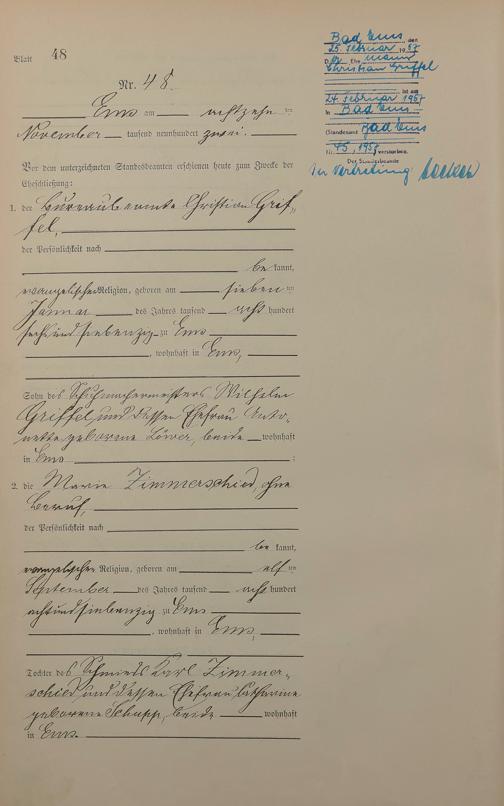 Blatt 48
Nr. 48.
Ems am achtzehnten
November tausend neunhundert zwei.
Vor dem unterzeichneten Standesbeamten erschienen heute zum Zwecke der
Eheschließung:
1. der Bureaubeamte Christian Grif-
fel,
der Persönlichkeit nach
bekannt,
evangelischer Religion, geboren am siebenten
Januar des Jahres tausend acht hundert
sechsundsiebenzig zu Ems
, wohnhaft in Ems,
Sohn des Schuhmachermeisters Wilhelm
Griffel und dessen Ehefrau Anto-
nette geborene Löwer, beide wohnhaft
in Ems ;
2. die Marie Zimmerschied, ohne
Beruf,
der Persönlichkeit nach
bekannt,
evangelischer Religion, geboren am elften
September des Jahres tausend acht hundert
achtundsiebenzig zu Ems
, wohnhaft in Ems,
Tochter des Schmieds Karl Zimmer-
schied und dessen Ehefrau Catharine
geborene Schupp, beide wohnhaft
in Ems.
Bad Ems, den
25. Februar 1957
Der Ehemann
Christian Griffel
ist am
24. Februar 1957
in Bad Ems
Standesamt Bad Ems
Nr. 45, 1957 verstorben.
Der Standesbeamte
In Vertretung